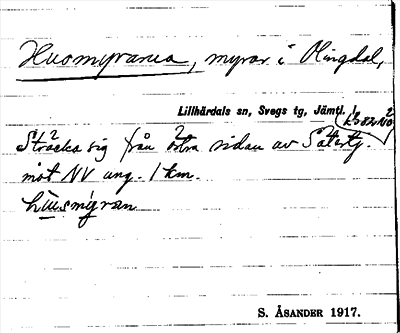 Husmyrarna, myrar i Olingdal,
Lillhärdals sn, Svegs tg, Jämtl. l.
Sträcka sig från östra sidan av Sätertj.
mot NV ung. 1 km.
hu̲smy̲ran
S. ÅSANDER 1917.